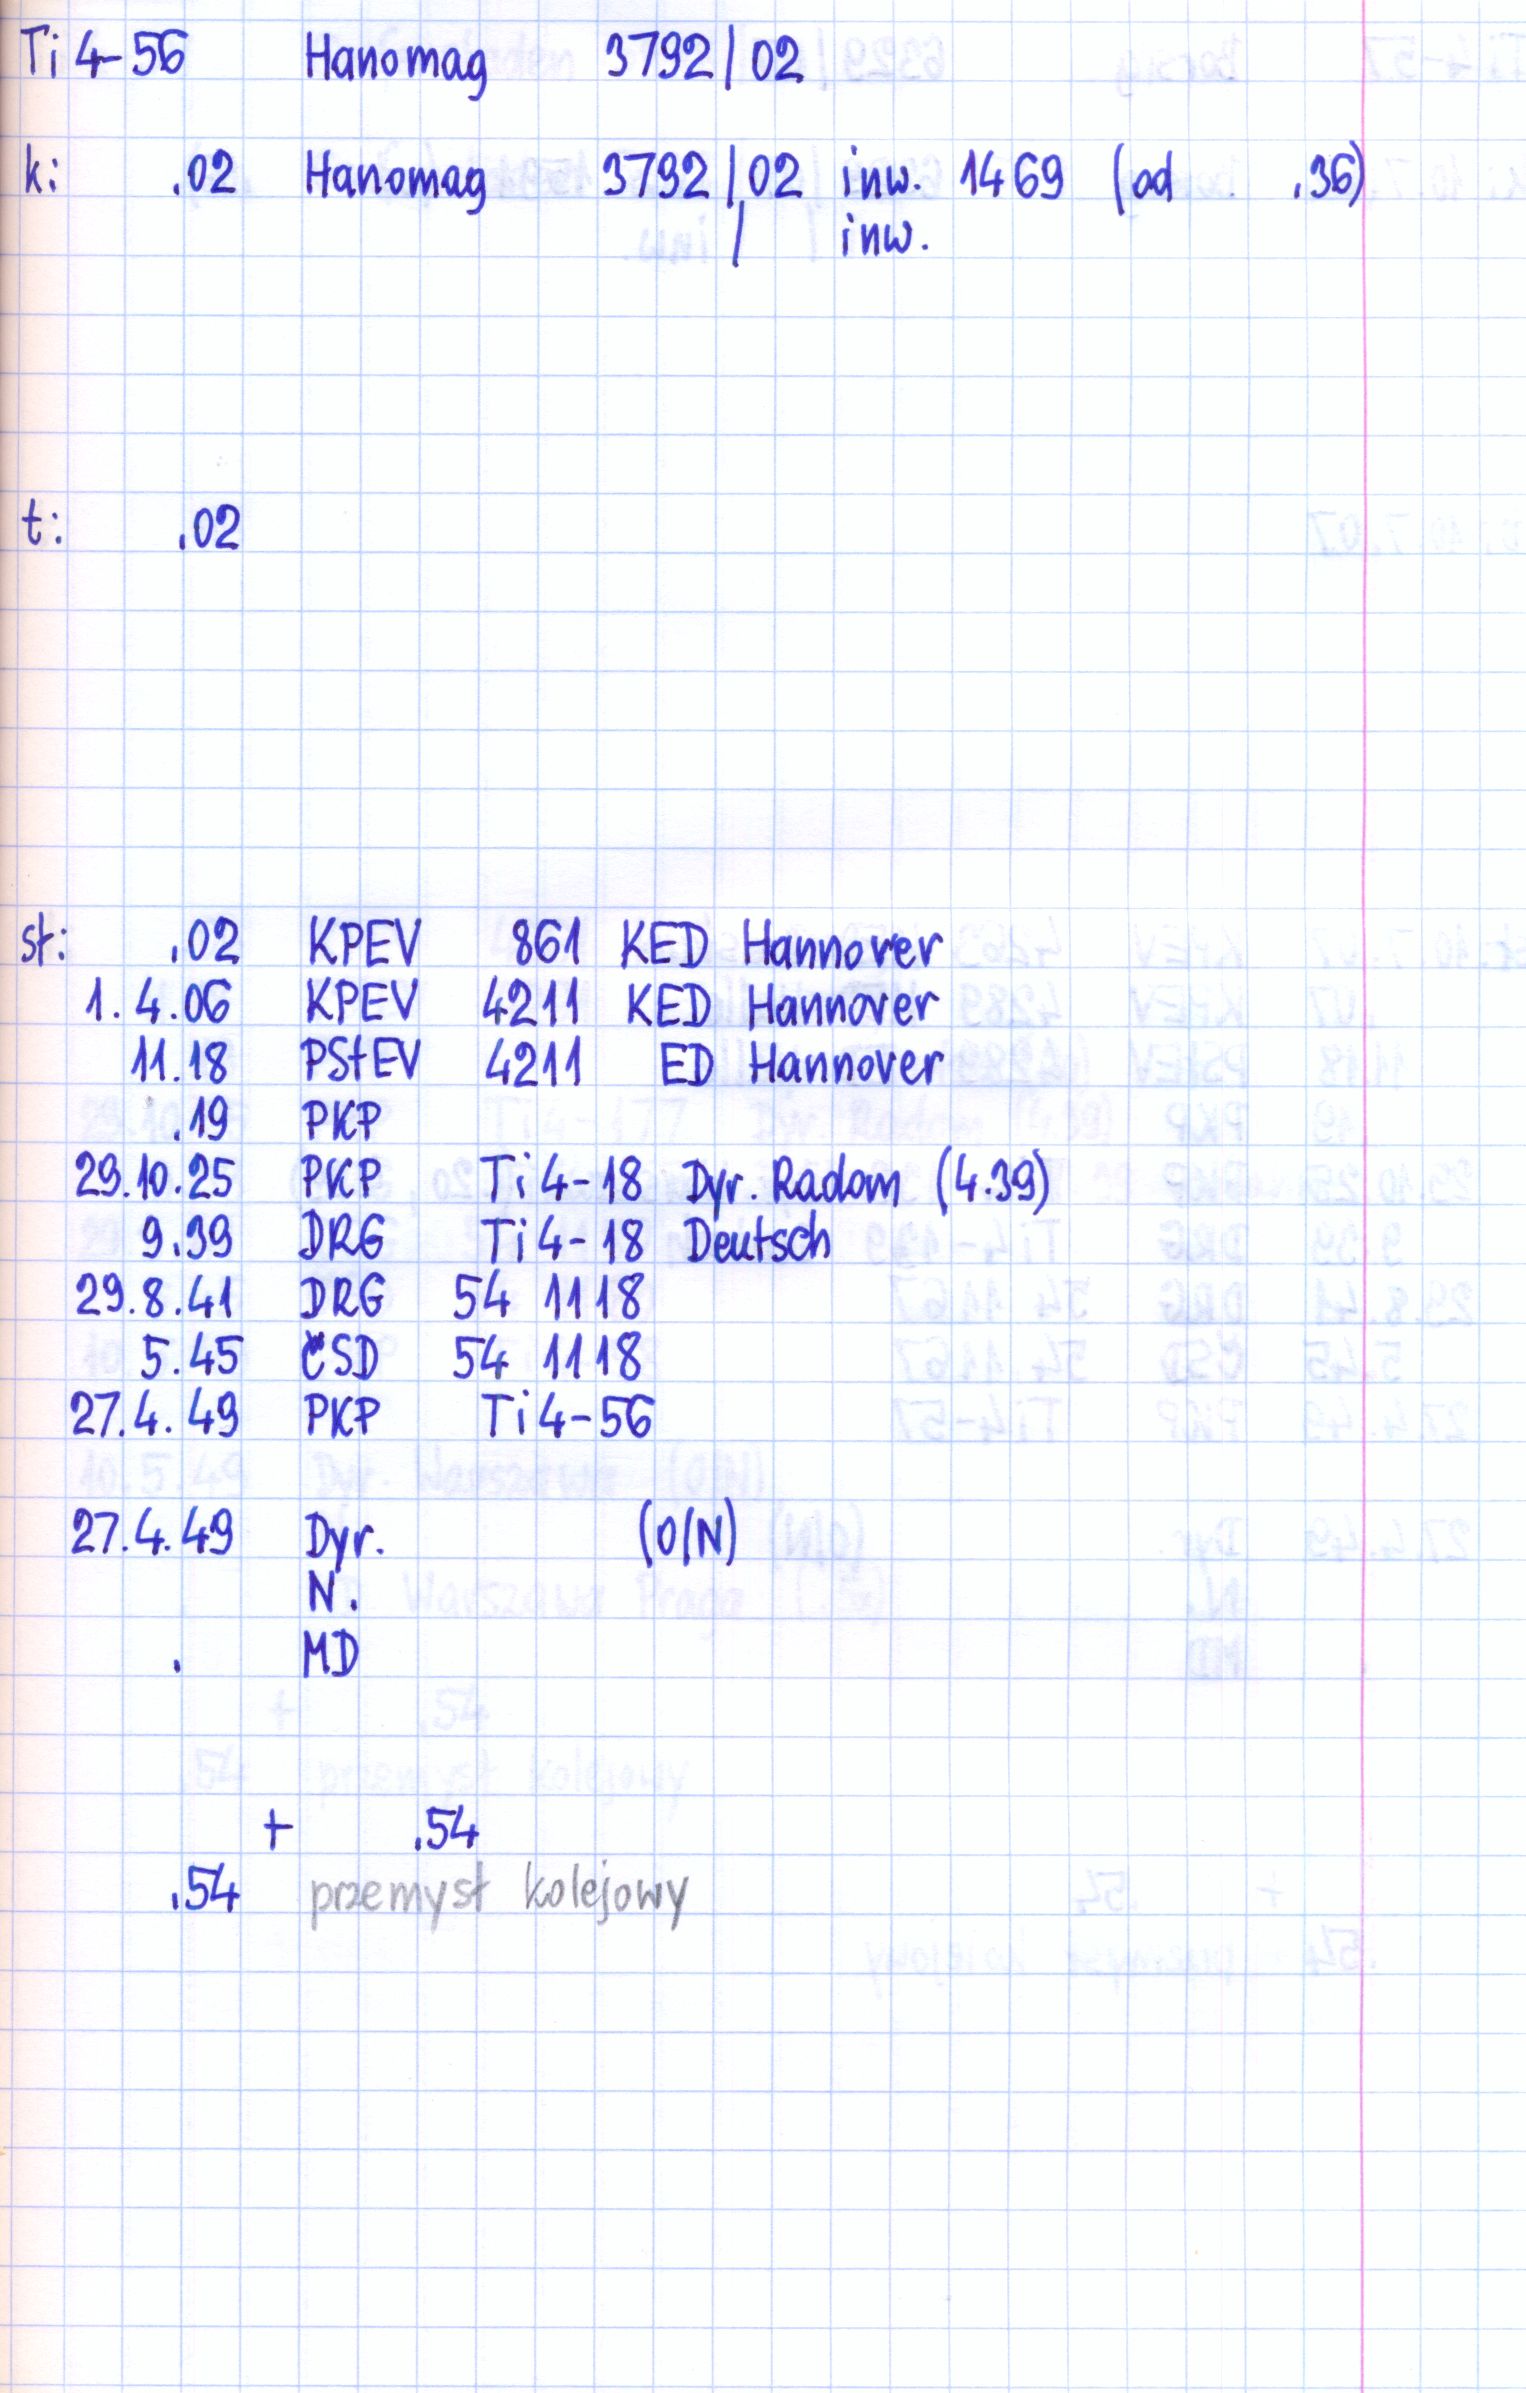 Ti 4-56 Hanomag 3792/02
k: .02 Hanomag 3792/02 inw. 1469 (od .36)
/ inw.
t: .02
st: .02 KPEV 861 KED Hannover
1.4.06 KPEV 4211 KED Hannover
11.18 PStEV 4211 ED Hannover
.19 PKP
29.10.25 PKP Ti 4-18 Dyr. Radom (4.39)
9.39 DRG Ti 4-18 Deutsch
29.8.41 DRG 54 1118
5.45 ČSD 54 1118
27.4.49 PKP Ti 4-56
27.4.49 Dyr. (O/N)
N.
. MD
+ .54
.54 przemysł kolejowy